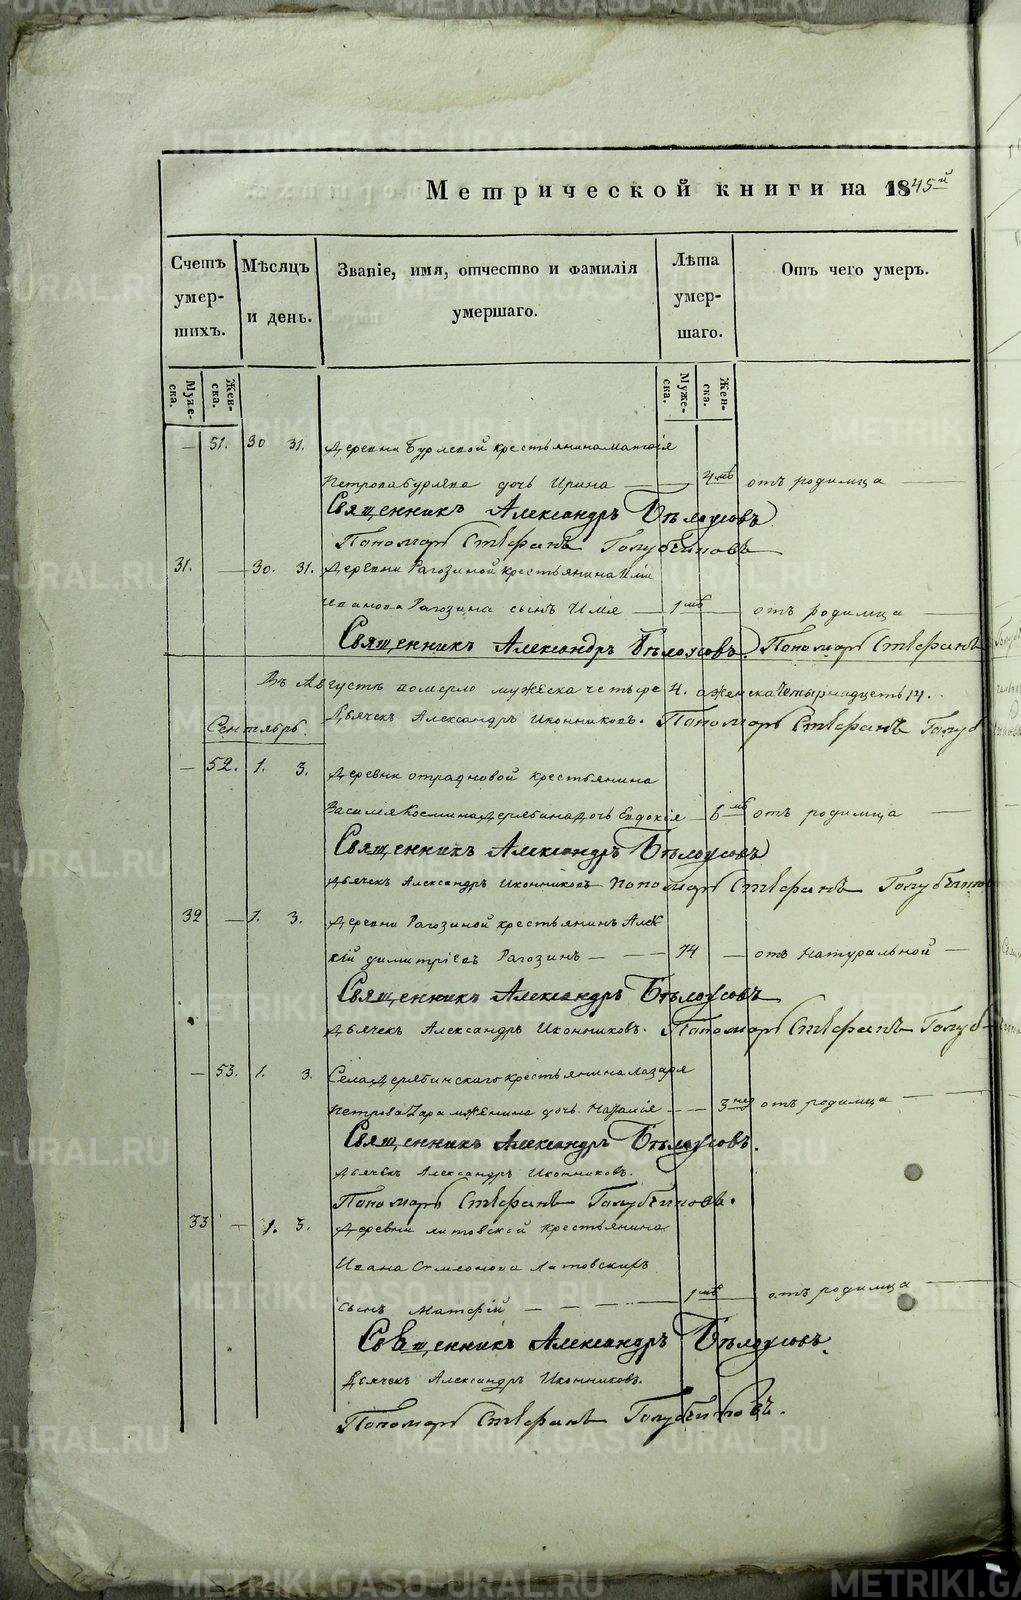 Метрической книги на 1845й
Счетъ умер- шихъ.
Мѣсяцъ и день.
Званіе, имя, отчество и фамилія умершаго.
Лѣта умер- шаго.
Отъ чего умеръ.
Муже- ска.
Жен- ска.
Муже- ска.
Жен- ска.
— 51. 30 31. Деревни Бурлевой крестьянина Матѳія
Петрова Бурлева дочь Ирина — 4 мѣ отъ родимца —
Священникъ Александръ Бѣлоусовъ
Пономарь Стефанъ Голубчиковъ
31. — 30. 31. Деревни Рагозиной крестьянина Иліи
Иванова Рагозина сынъ Илія — 1 мѣ — отъ родимца —
Священникъ Александръ Бѣлоусовъ. Пономарь Стефанъ
Въ Августѣ померло мужеска четыре 4. а женска четырнадцать 14.
Дьячекъ Александръ Иконниковъ. Пономарь Стефанъ Голуб
Сентябрь.
— 52. 1. 3. Деревни Отрадновой крестьянина
Василія Космина Дерябина дочь Евдокія — 6 мѣ отъ родимца —
Священникъ Александръ Бѣлоусовъ
Дьячекъ Александръ Иконниковъ Пономарь Стефанъ Голубчиков
32 — 1. 3. Деревни Рагозиной крестьянинъ Алек
сій Димитріевъ Рагозинъ — — — 74 — отъ натуральной —
Священникъ Александръ Бѣлоусовъ
Дьячекъ Александръ Иконниковъ. Пономарь Стефанъ Голуб
— 53. 1. 3. Села Дерябинскаго крестьянина Лазаря
Петрова дочь Наталія — — 3 нед отъ родимца —
Священникъ Александръ Бѣлоусовъ.
Дьячекъ Александръ Иконниковъ.
Пономарь Стефанъ Голубчиковъ.
33 — 1. 3. Деревни Литовской крестьянина
Ивана Симеонова Литовскихъ
сынъ Матѳій — — — — 1 мѣ — отъ родимца —
Священникъ Александръ Бѣлоусовъ.
Дьячекъ Александръ Иконниковъ.
Пономарь Стефанъ Голубчиковъ.
METRIKI.GASO-URAL.RU